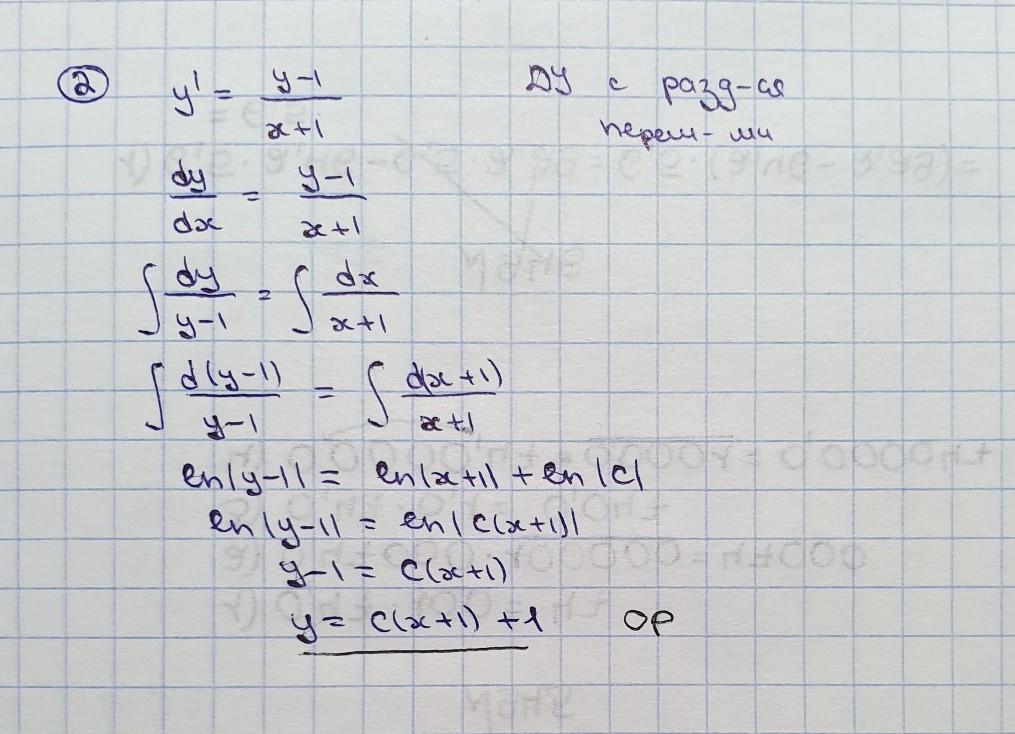 ② y' = (y-1)/(x+1) ДУ с разд-ся
перем-ми
dy/dx = (y-1)/(x+1)
∫ dy/(y-1) = ∫ dx/(x+1)
∫ d(y-1)/(y-1) = ∫ d(x+1)/(x+1)
ln|y-1| = ln|x+1| + ln|C|
ln|y-1| = ln|C(x+1)|
y-1 = C(x+1)
y = C(x+1) + 1 ОР